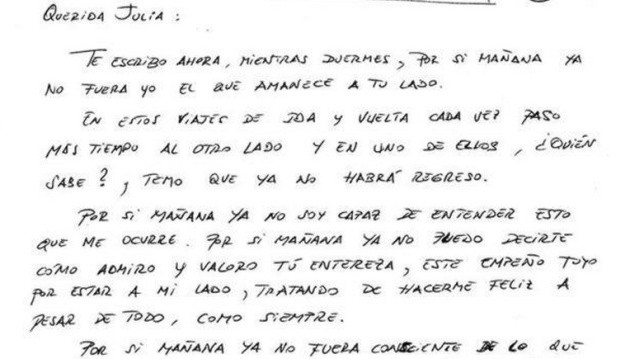 QUERIDA JULIA:
TE ESCRIBO AHORA, MIENTRAS DUERMES, POR SI MAÑANA YA
NO FUERA YO EL QUE AMANECE A TU LADO.
EN ESTOS VIAJES DE IDA Y VUELTA CADA VEZ PASO
MÁS TIEMPO AL OTRO LADO Y EN UNO DE ELLOS, ¿QUIÉN
SABE?, TEMO QUE YA NO HABRÁ REGRESO.
POR SI MAÑANA YA NO SOY CAPAZ DE ENTENDER ESTO
QUE ME OCURRE. POR SI MAÑANA YA NO PUEDO DECIRTE
COMO ADMIRO Y VALORO TÚ ENTEREZA, ESTE EMPEÑO TUYO
POR ESTAR A MI LADO, TRATANDO DE HACERME FELIZ A
PESAR DE TODO, COMO SIEMPRE.
POR SI MAÑANA YA NO FUERA CONSCIENTE DE LO QUE